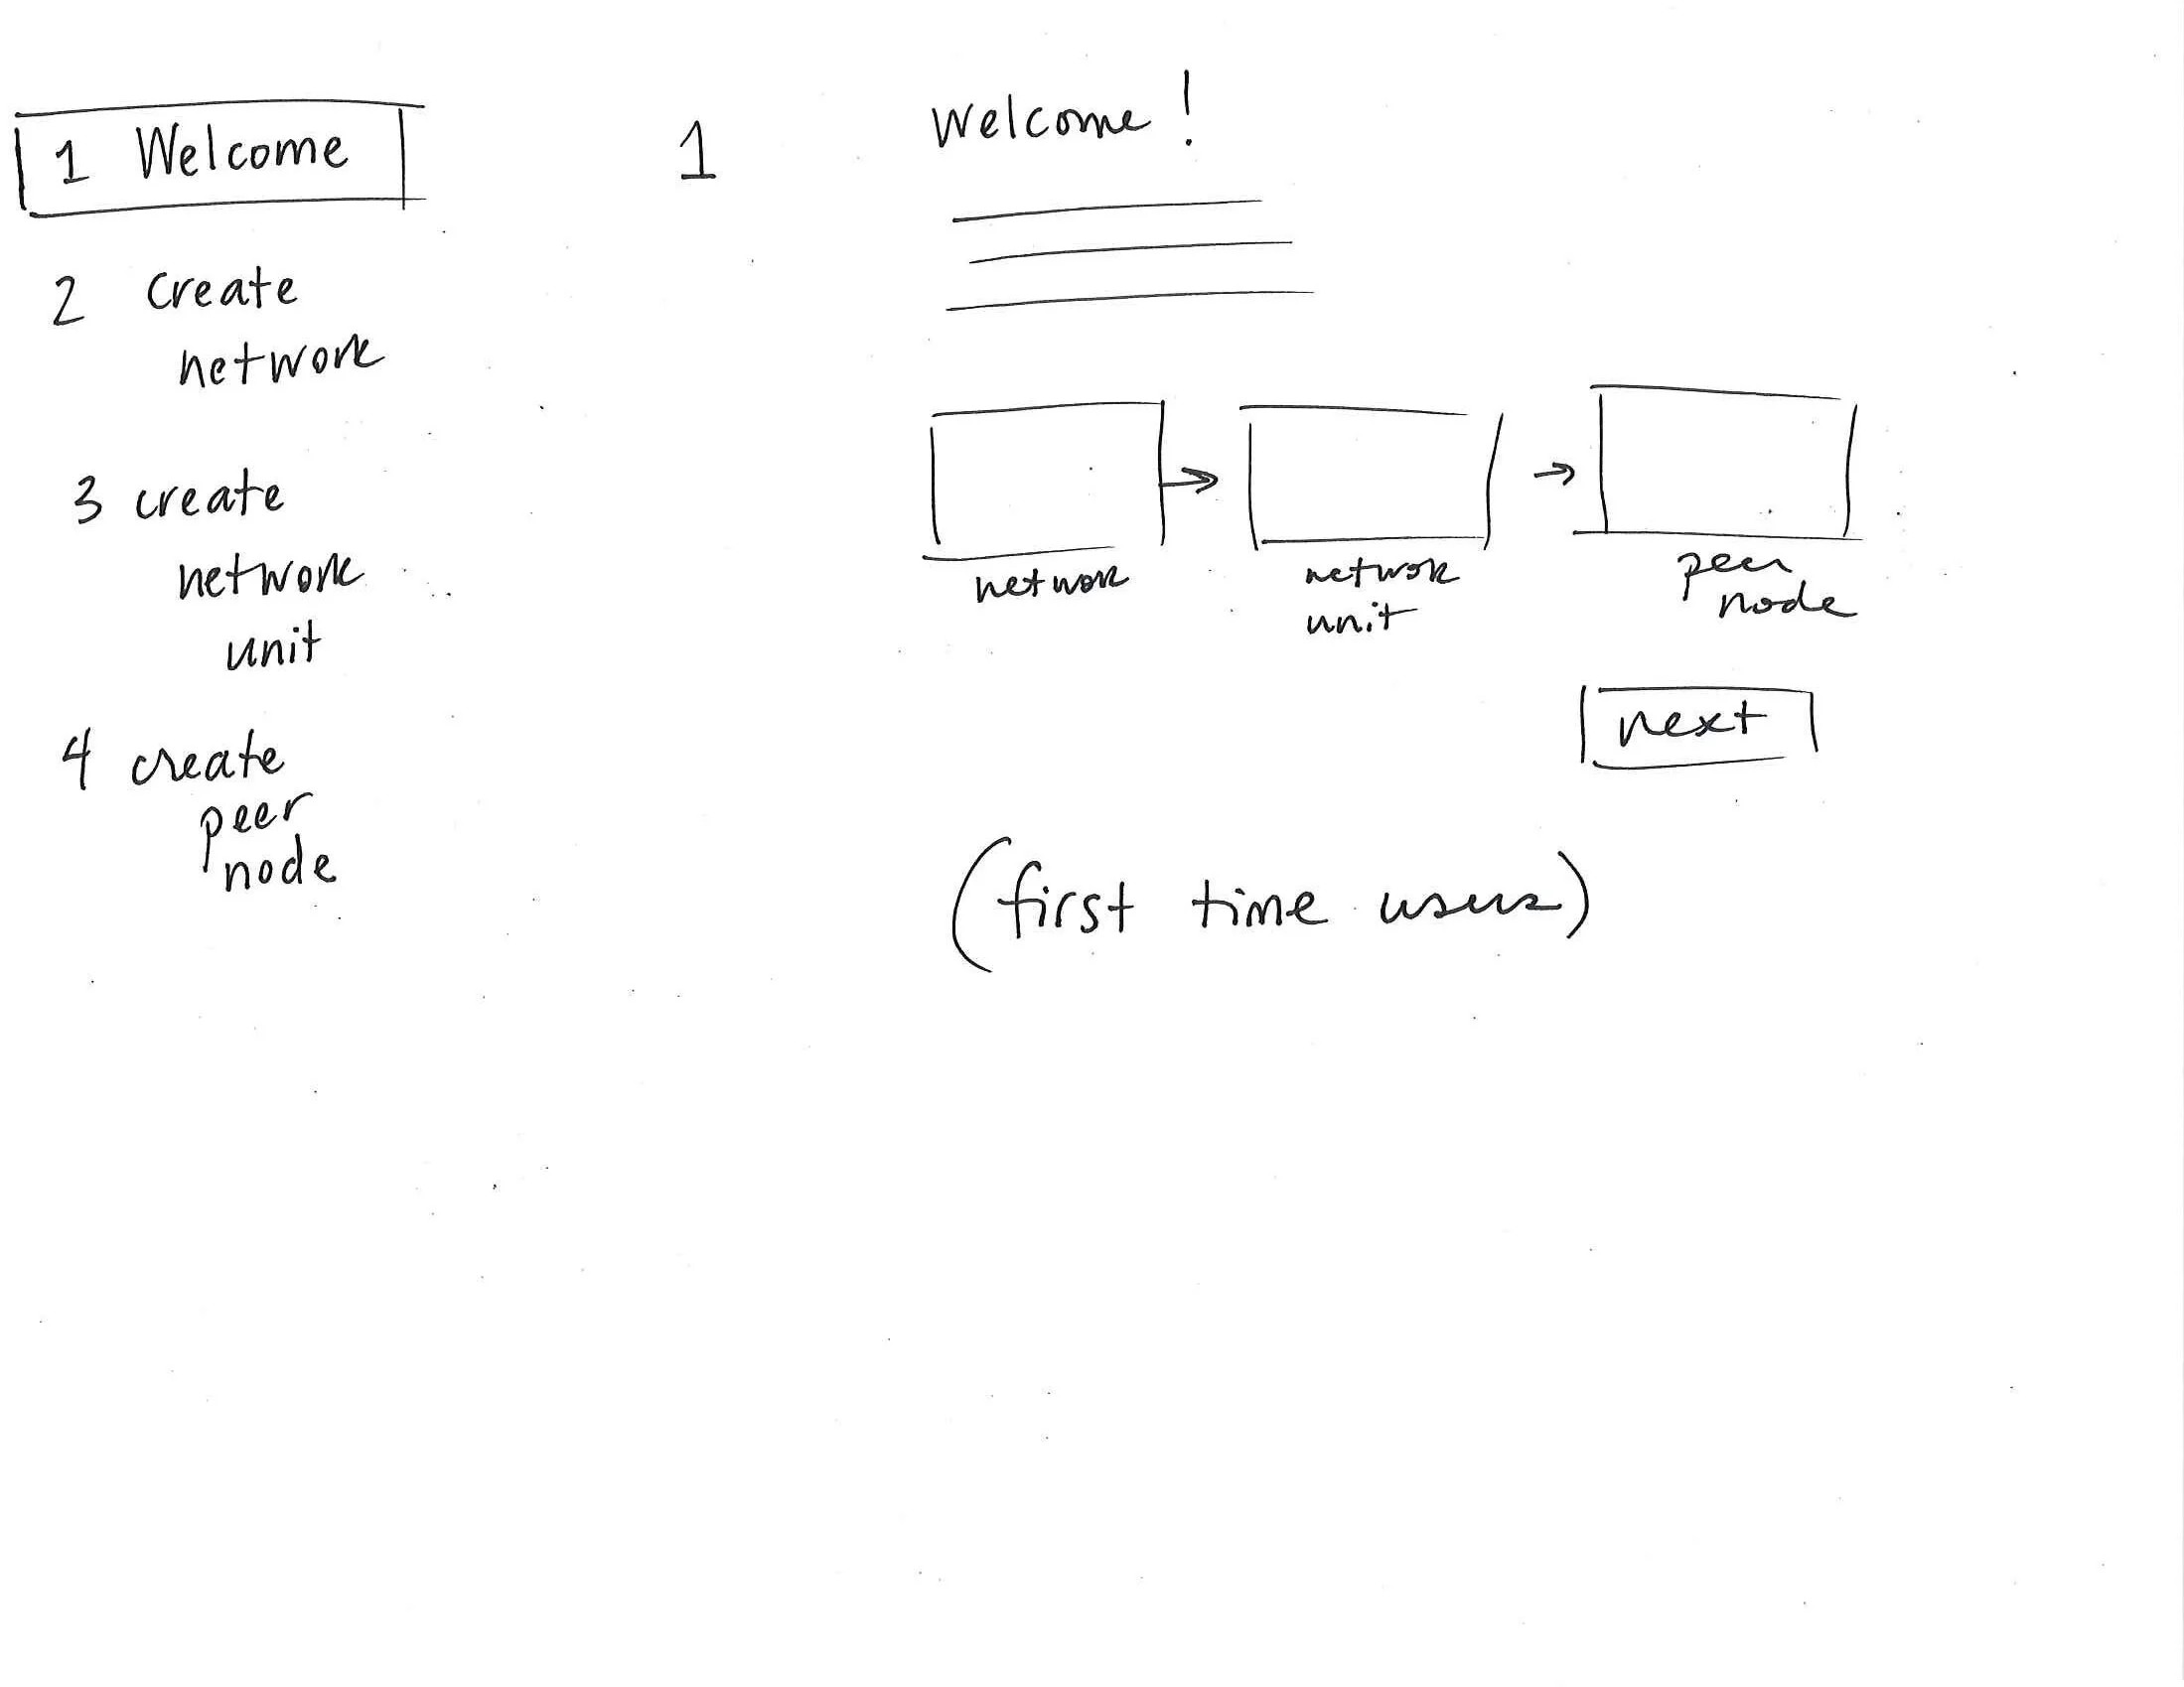 1 Welcome
2 create
network
3 create
network
unit
4 create
peer
node
1
Welcome!
network
network
unit
peer
node
next
(first time users)